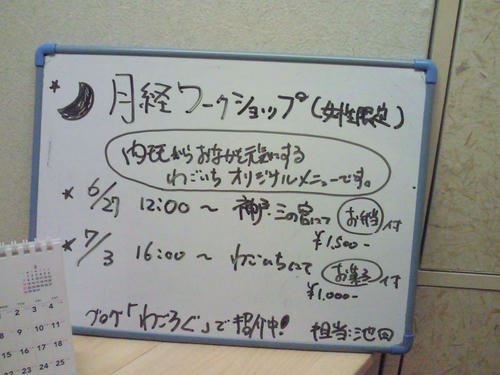 月経ワークショップ(女性限定)
からおなかを元気にする
わごいち オリジナルメニューです。
6/27 12:00～ 神戸・三の宮にて お弁当付
¥1,500-
7/3 16:00～ わごいちにて お菓子付
¥1,000-
ブログ「わごろぐ」で紹介中!
担当:池田
2 3 4
9 10 11
15 16 17 18
22 23 24 25